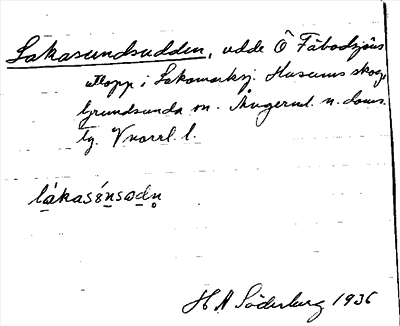 Lakasundsudden, udde Ö Fäbodsjöns
utlopp i Lakamarksj. Husums skog,
Grundsunda sn. Ångerml. n. doms.
tg. Vnorrl. l.
lákasónsødn
H A Söderberg 1936